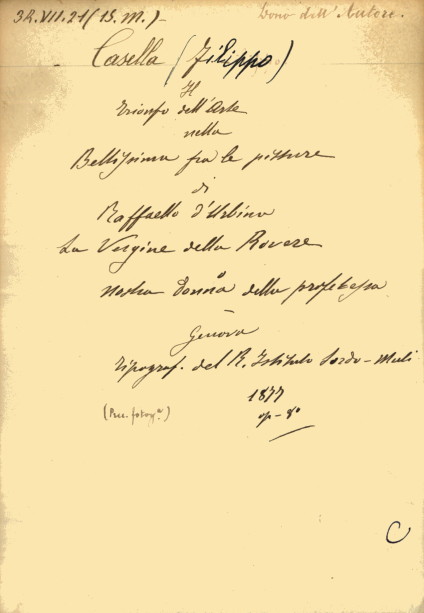 32.VII.21 (15. M.)-
Dono dell'Autore.
Casella (Filippo)
Il
trionfo dell'Arte
nella
Bellissima fra le pitture
di
Raffaello d'Urbino
La Vergine della Rovere
nostra Donna della profetessa
-
Genova
Tipograf. del R. Istituto Sordo-Muti
1877
op-8°
(Pres. fotogª)
C